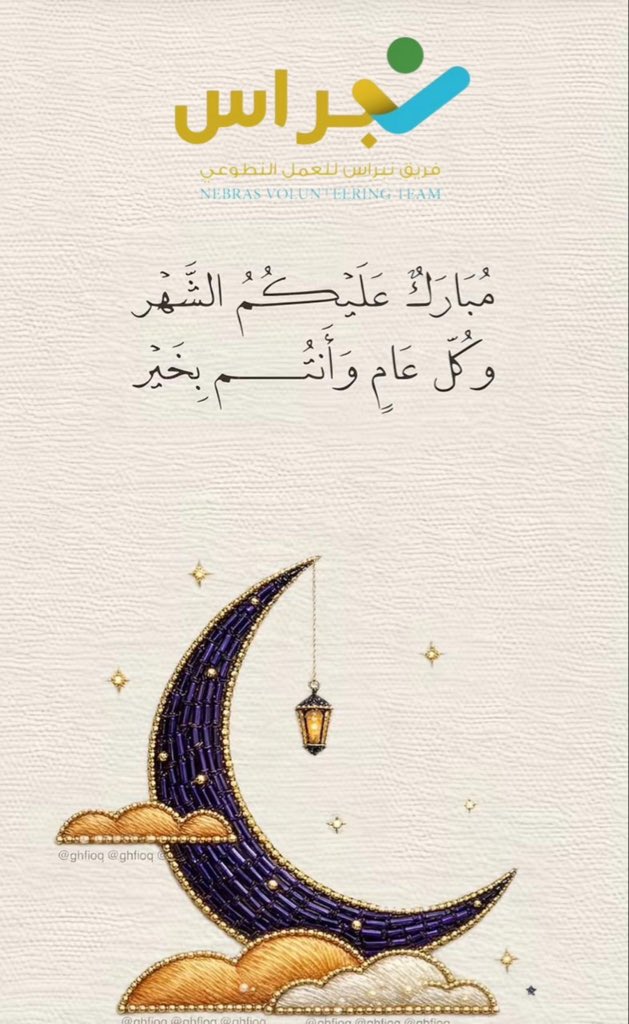 نبراس
فريق نبراس للعمل التطوعي
NEBRAS VOLUNTEERING TEAM
مُبَارَكٌ عَلَيْكُمُ الشَّهْر
وكُلّ عَامٍ وَأَنتُم بِخَيْر
@ghfioq @ghfioq @
@ghfioq @ghfioq @ghfioq @ghfioq @ghfioq @ghfioq